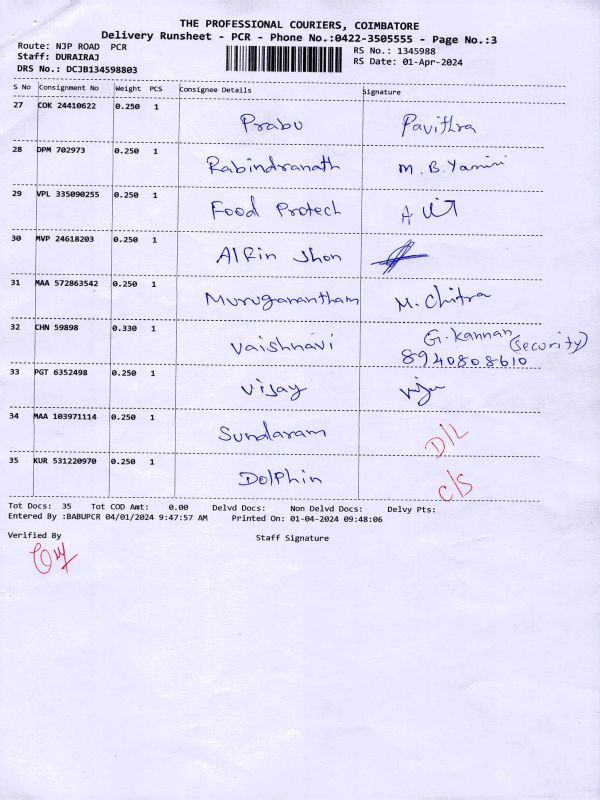 THE PROFESSIONAL COURIERS, COIMBATORE
Delivery Runsheet - PCR - Phone No.:0422-3505555 - Page No.:3
Route: NJP ROAD PCR RS No.: 1345988
Staff: DURAIRAJ RS Date: 01-Apr-2024
DRS No.: DCJB134598803
S No Consignment No Weight PCS Consignee Details Signature
27 COK 24410622 0.250 1 Prabu Pavithra
28 DPM 702973 0.250 1 Rabindranath M. B. Yamini
29 VPL 335090255 0.250 1 Food Protech
30 MVP 24618203 0.250 1 Alfin Jhon
31 MAA 572863542 0.250 1 Muruganantham M. Chitra
32 CHN 59898 0.330 1 Vaishnavi G. Kannan (Security)
8940808610
33 PGT 6352498 0.250 1 Vijay
34 MAA 103971114 0.250 1 Sundaram D/L
35 KUR 531220970 0.250 1 Dolphin C/S
Tot Docs: 35 Tot COD Amt: 0.00 Delvd Docs: Non Delvd Docs: Delvy Pts:
Entered By :BABUPCR 04/01/2024 9:47:57 AM Printed On: 01-04-2024 09:48:06
Verified By Staff Signature